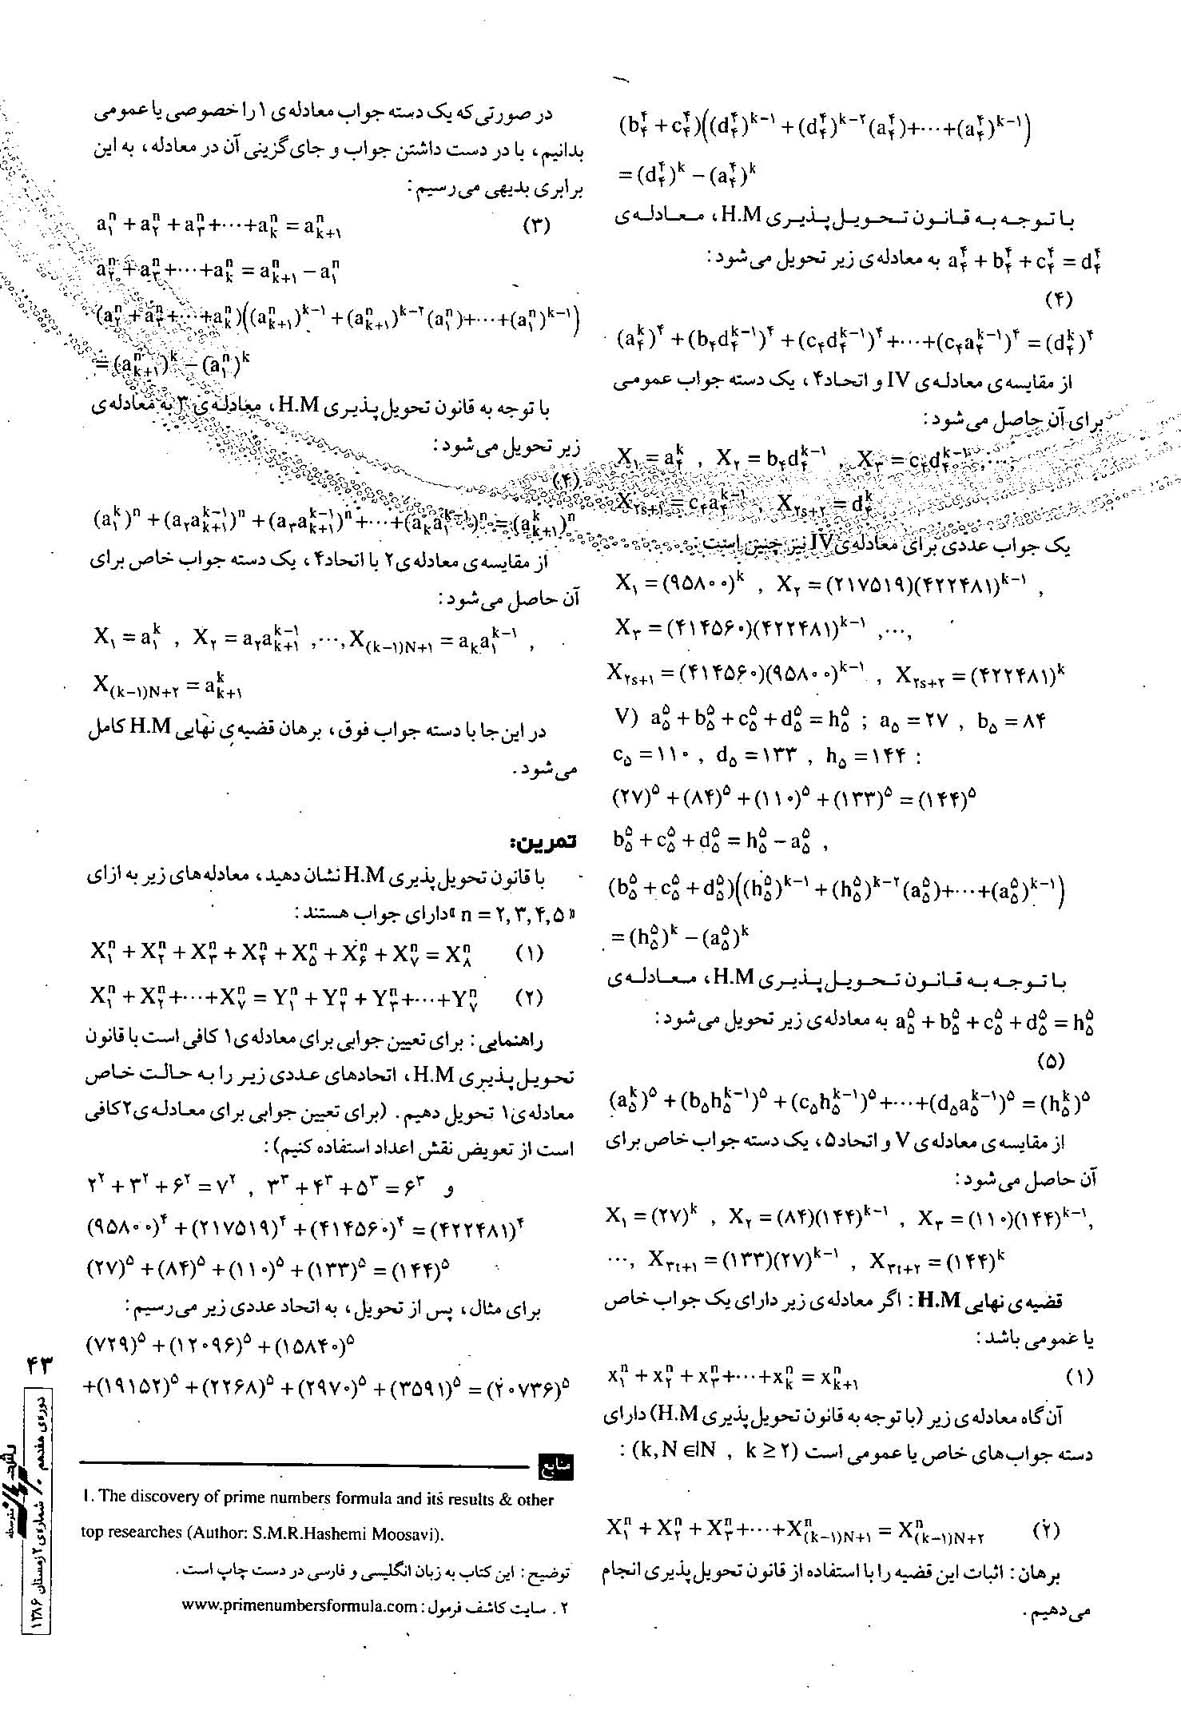 (b₄⁴ + c₄⁴)((d₄⁴)ᵏ⁻¹ + (d₄⁴)ᵏ⁻²(a₄⁴)+⋯+(a₄⁴)ᵏ⁻¹)
= (d₄⁴)ᵏ − (a₄⁴)ᵏ
با توجه به قانون تحویل‌پذیری H.M، معادله‌ی
a₄⁴ + b₄⁴ + c₄⁴ = d₄⁴ به معادله‌ی زیر تحویل می‌شود:
(۴)
(a₄ᵏ)⁴ + (b₄d₄ᵏ⁻¹)⁴ + (c₄d₄ᵏ⁻¹)⁴ +⋯+(c₄a₄ᵏ⁻¹)⁴ = (d₄ᵏ)⁴
از مقایسه‌ی معادله‌ی IV و اتحاد۴، یک دسته جواب عمومی
برای آن حاصل می‌شود:
X₁ = a₄ᵏ , X₂ = b₄d₄ᵏ⁻¹ , X₃ = c₄d₄ᵏ⁻¹,⋯,
X₂ₛ₊₁ = c₄a₄ᵏ⁻¹ , X₂ₛ₊₂ = d₄ᵏ
یک جواب عددی برای معادله‌ی IV نیز چنین است:
X₁ = (۹۵۸۰۰)ᵏ , X₂ = (۲۱۷۵۱۹)(۴۲۲۴۸۱)ᵏ⁻¹ ,
X₃ = (۴۱۴۵۶۰)(۴۲۲۴۸۱)ᵏ⁻¹ ,⋯,
X₂ₛ₊₁ = (۴۱۴۵۶۰)(۹۵۸۰۰)ᵏ⁻¹ , X₂ₛ₊₂ = (۴۲۲۴۸۱)ᵏ
V) a₅⁵ + b₅⁵ + c₅⁵ + d₅⁵ = h₅⁵ ; a₅ = ۲۷ , b₅ = ۸۴
c₅ = ۱۱۰ , d₅ = ۱۳۳ , h₅ = ۱۴۴ :
(۲۷)⁵ + (۸۴)⁵ + (۱۱۰)⁵ + (۱۳۳)⁵ = (۱۴۴)⁵
b₅⁵ + c₅⁵ + d₅⁵ = h₅⁵ − a₅⁵ ,
(b₅⁵ + c₅⁵ + d₅⁵)((h₅⁵)ᵏ⁻¹ + (h₅⁵)ᵏ⁻²(a₅⁵)+⋯+(a₅⁵)ᵏ⁻¹)
= (h₅⁵)ᵏ − (a₅⁵)ᵏ
با توجه به قانون تحویل‌پذیری H.M، معادله‌ی
a₅⁵ + b₅⁵ + c₅⁵ + d₅⁵ = h₅⁵ به معادله‌ی زیر تحویل می‌شود:
(۵)
(a₅ᵏ)⁵ + (b₅h₅ᵏ⁻¹)⁵ + (c₅h₅ᵏ⁻¹)⁵ +⋯+(d₅a₅ᵏ⁻¹)⁵ = (h₅ᵏ)⁵
از مقایسه‌ی معادله‌ی V و اتحاد۵، یک دسته جواب خاص برای
آن حاصل می‌شود:
X₁ = (۲۷)ᵏ , X₂ = (۸۴)(۱۴۴)ᵏ⁻¹ , X₃ = (۱۱۰)(۱۴۴)ᵏ⁻¹,
⋯, X₃ₜ₊₁ = (۱۳۳)(۲۷)ᵏ⁻¹ , X₃ₜ₊₂ = (۱۴۴)ᵏ
قضیه‌ی نهایی H.M: اگر معادله‌ی زیر دارای یک جواب خاص
یا عمومی باشد:
x₁ⁿ + x₂ⁿ + x₃ⁿ +⋯+xₖⁿ = xₖ₊₁ⁿ (۱)
آن گاه معادله‌ی زیر (با توجه به قانون تحویل‌پذیری H.M) دارای
دسته جواب‌های خاص یا عمومی است (k,N∈ℕ , k≥۲) :
X₁ⁿ + X₂ⁿ + X₃ⁿ+⋯+X₍ₖ₋₁₎N₊₁ⁿ = X₍ₖ₋₁₎N₊₂ⁿ (۲)
برهان: اثبات این قضیه را با استفاده از قانون تحویل‌پذیری انجام
می‌دهیم.
در صورتی‌که یک دسته جواب معادله‌ی ۱ را خصوصی یا عمومی
بدانیم، با در دست داشتن جواب و جای‌گزینی آن در معادله، به این
برابری بدیهی می‌رسیم:
a₁ⁿ + a₂ⁿ + a₃ⁿ+⋯+aₖⁿ = aₖ₊₁ⁿ (۳)
a₂ⁿ + a₃ⁿ+⋯+aₖⁿ = aₖ₊₁ⁿ − a₁ⁿ
(a₂ⁿ + a₃ⁿ+⋯+aₖⁿ)((aₖ₊₁ⁿ)ᵏ⁻¹ + (aₖ₊₁ⁿ)ᵏ⁻²(a₁ⁿ)+⋯+(a₁ⁿ)ᵏ⁻¹)
= (aₖ₊₁ⁿ)ᵏ − (a₁ⁿ)ᵏ
با توجه به قانون تحویل‌پذیری H.M، معادله‌ی ۳ به معادله‌ی
زیر تحویل می‌شود:
(۴)
(a₁ᵏ)ⁿ + (a₂aₖ₊₁ᵏ⁻¹)ⁿ + (a₃aₖ₊₁ᵏ⁻¹)ⁿ+⋯+(aₖa₁ᵏ⁻¹)ⁿ = (aₖ₊₁ᵏ)ⁿ
از مقایسه‌ی معادله‌ی۲ با اتحاد۴، یک دسته جواب خاص برای
آن حاصل می‌شود:
X₁ = a₁ᵏ , X₂ = a₂aₖ₊₁ᵏ⁻¹ ,⋯,X₍ₖ₋₁₎N₊₁ = aₖa₁ᵏ⁻¹ ,
X₍ₖ₋₁₎N₊₂ = aₖ₊₁ᵏ
در این‌جا با دسته جواب فوق، برهان قضیه‌ی نهایی H.M کامل
می‌شود.
تمرین:
با قانون تحویل‌پذیری H.M نشان دهید، معادله‌های زیر به ازای
«n = ۲,۳,۴,۵» دارای جواب هستند:
X₁ⁿ + X₂ⁿ + X₃ⁿ + X₄ⁿ + X₅ⁿ + X₆ⁿ + X₇ⁿ = X₈ⁿ (۱)
X₁ⁿ + X₂ⁿ+⋯+X₇ⁿ = Y₁ⁿ + Y₂ⁿ + Y₃ⁿ+⋯+Y₇ⁿ (۲)
راهنمایی: برای تعیین جوابی برای معادله‌ی۱ کافی است با قانون
تحویل‌پذیری H.M، اتحادهای عددی زیر را به حالت خاص
معادله‌ی۱ تحویل دهیم. (برای تعیین جوابی برای معادله‌ی۲کافی
است از تعویض نقش اعداد استفاده کنیم):
۲² + ۳² + ۶² = ۷² , ۳³ + ۴³ + ۵³ = ۶³ و
(۹۵۸۰۰)⁴ + (۲۱۷۵۱۹)⁴ + (۴۱۴۵۶۰)⁴ = (۴۲۲۴۸۱)⁴
(۲۷)⁵ + (۸۴)⁵ + (۱۱۰)⁵ + (۱۳۳)⁵ = (۱۴۴)⁵
برای مثال، پس از تحویل، به اتحاد عددی زیر می‌رسیم:
(۷۲۹)⁵ + (۱۲۰۹۶)⁵ + (۱۵۸۴۰)⁵
+(۱۹۱۵۲)⁵ + (۲۲۶۸)⁵ + (۲۹۷۰)⁵ + (۳۵۹۱)⁵ = (۲۰۷۳۶)⁵
منابع
1. The discovery of prime numbers formula and its results & other
top researches (Author: S.M.R.Hashemi Moosavi).
توضیح: این کتاب به زبان انگلیسی و فارسی در دست چاپ است.
۲. سایت کاشف فرمول: www.primenumbersformula.com
۴۳
دوره‌ی هفدهم / شماره‌ی ۲ زمستان ۱۳۸۶